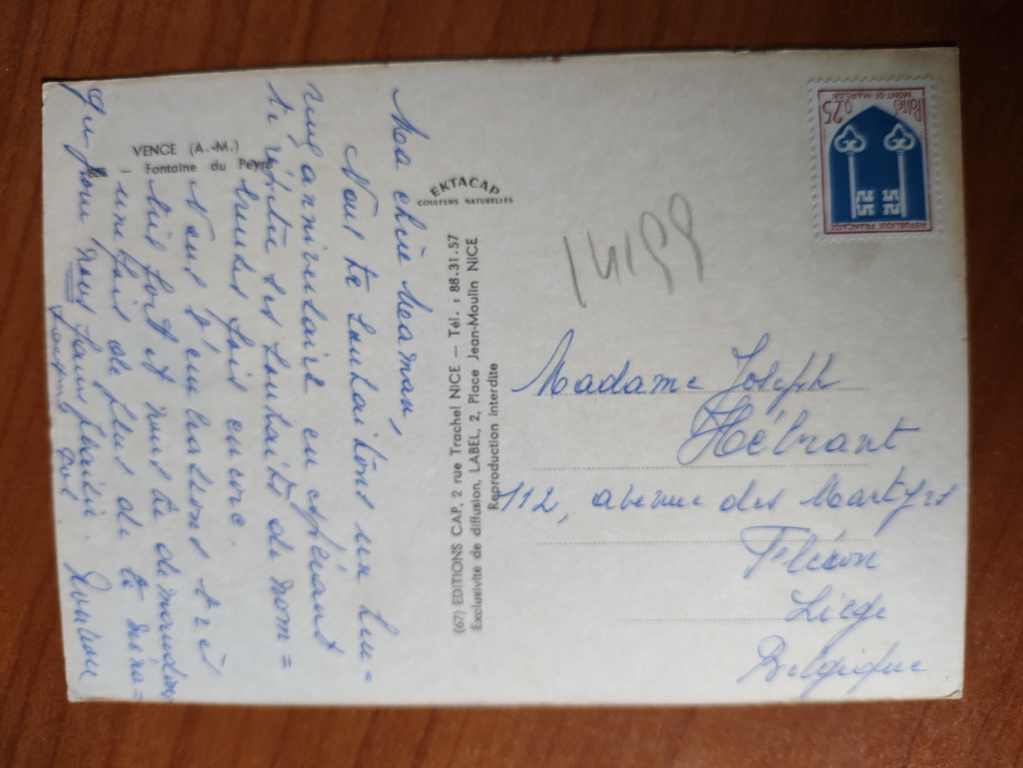 VENCE (A.-M.)
– Fontaine du Peyra
EKTACAP
COULEURS NATURELLES
(67) EDITIONS CAP, 2 rue Trachel NICE — Tél. : 88.31.57
Exclusivité de diffusion, LABEL, 2, Place Jean-Moulin NICE
Reproduction interdite
Ma chère Maman,
Nous te souhaitons un heu=
reux anniversaire en espérant
te répéter ces souhaits de nom=
breuses fois encore.
Nous t'embrassons très
très fort et nous te demandons
une fois de plus de te ména=
ger pour nous faire plaisir.
RÉPUBLIQUE FRANÇAISE
0,25
Postes
MONT-DE-MARSAN
Madame Joseph
Hébrant
112, avenue des Martyrs
Fléron
Liège
Belgique